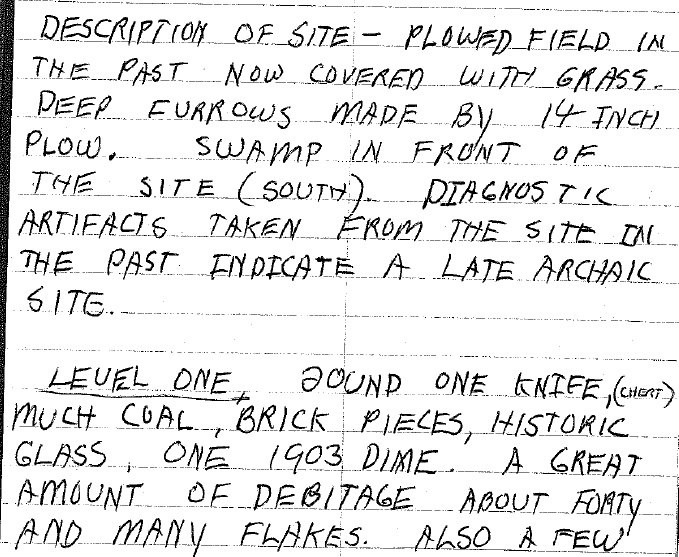 DESCRIPTION OF SITE - PLOWED FIELD IN
THE PAST NOW COVERED WITH GRASS.
DEEP FURROWS MADE BY 14 INCH
PLOW. SWAMP IN FRONT OF
THE SITE (SOUTH). DIAGNOSTIC
ARTIFACTS TAKEN FROM THE SITE IN
THE PAST INDICATE A LATE ARCHAIC
SITE.
LEVEL ONE, FOUND ONE KNIFE, (CHERT)
MUCH COAL, BRICK PIECES, HISTORIC
GLASS, ONE 1903 DIME. A GREAT
AMOUNT OF DEBITAGE ABOUT FORTY
AND MANY FLAKES. ALSO A FEW